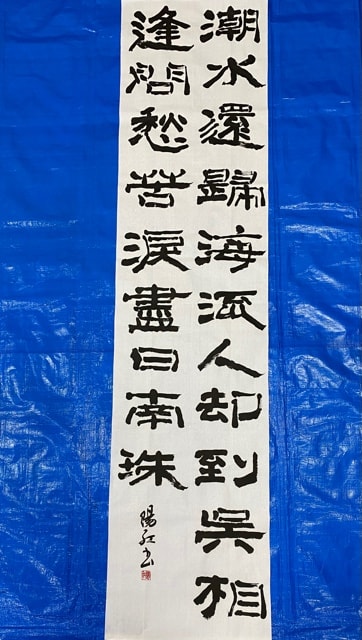 潮水還歸海流人却到吳相
逢問愁苦淚盡日南珠
陽紅書